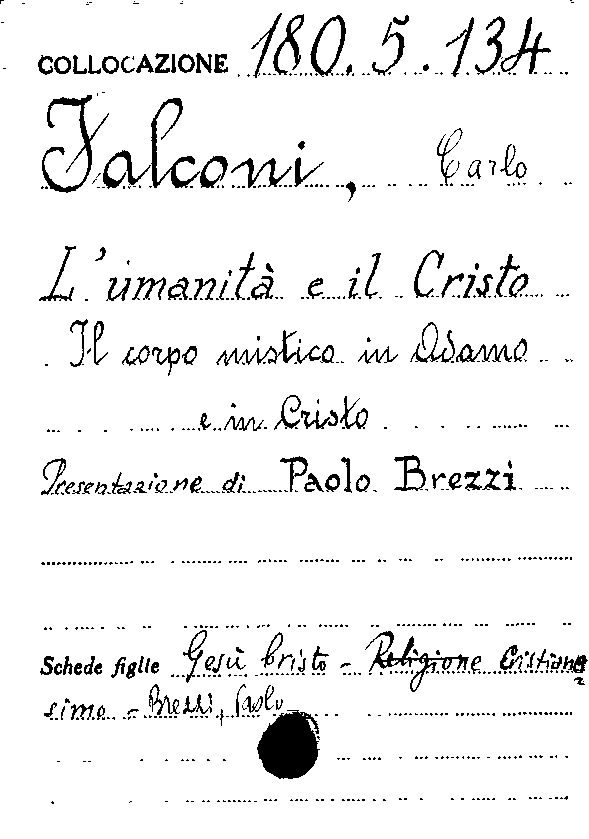 COLLOCAZIONE 180.5.134
Falconi, Carlo
L'umanità e il Cristo
Il corpo mistico in Adamo
e in Cristo
Presentazione di Paolo Brezzi
Schede figlie Gesù Cristo - Religione Cristiane
simo - Brezzi, Paolo